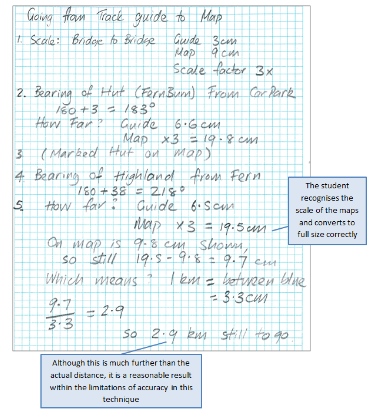 Going from Track guide to Map
1. Scale: Bridge to Bridge Guide 3cm
Map 9cm
Scale factor 3x
2. Bearing of Hut (Fern Bum) From Car Park
180 + 3 = 183°
How Far? Guide 6.6cm
Map x3 = 19.8 cm
3 (Marked Hut on map)
4. Bearing of Highland from Fern
180 + 38 = 218°
5. How far? Guide 6.5cm
Map x3 = 19.5cm
On map is 9.8 cm shown,
so still 19.5 - 9.8 = 9.7 cm
Which means? 1km = between blue
= 3.3cm
9.7
3.3
= 2.9
so 2.9 km still to go
The student
recognises the
scale of the maps
and converts to
full size correctly
Although this is much further than the
actual distance, it is a reasonable result
within the limitations of accuracy in this
technique